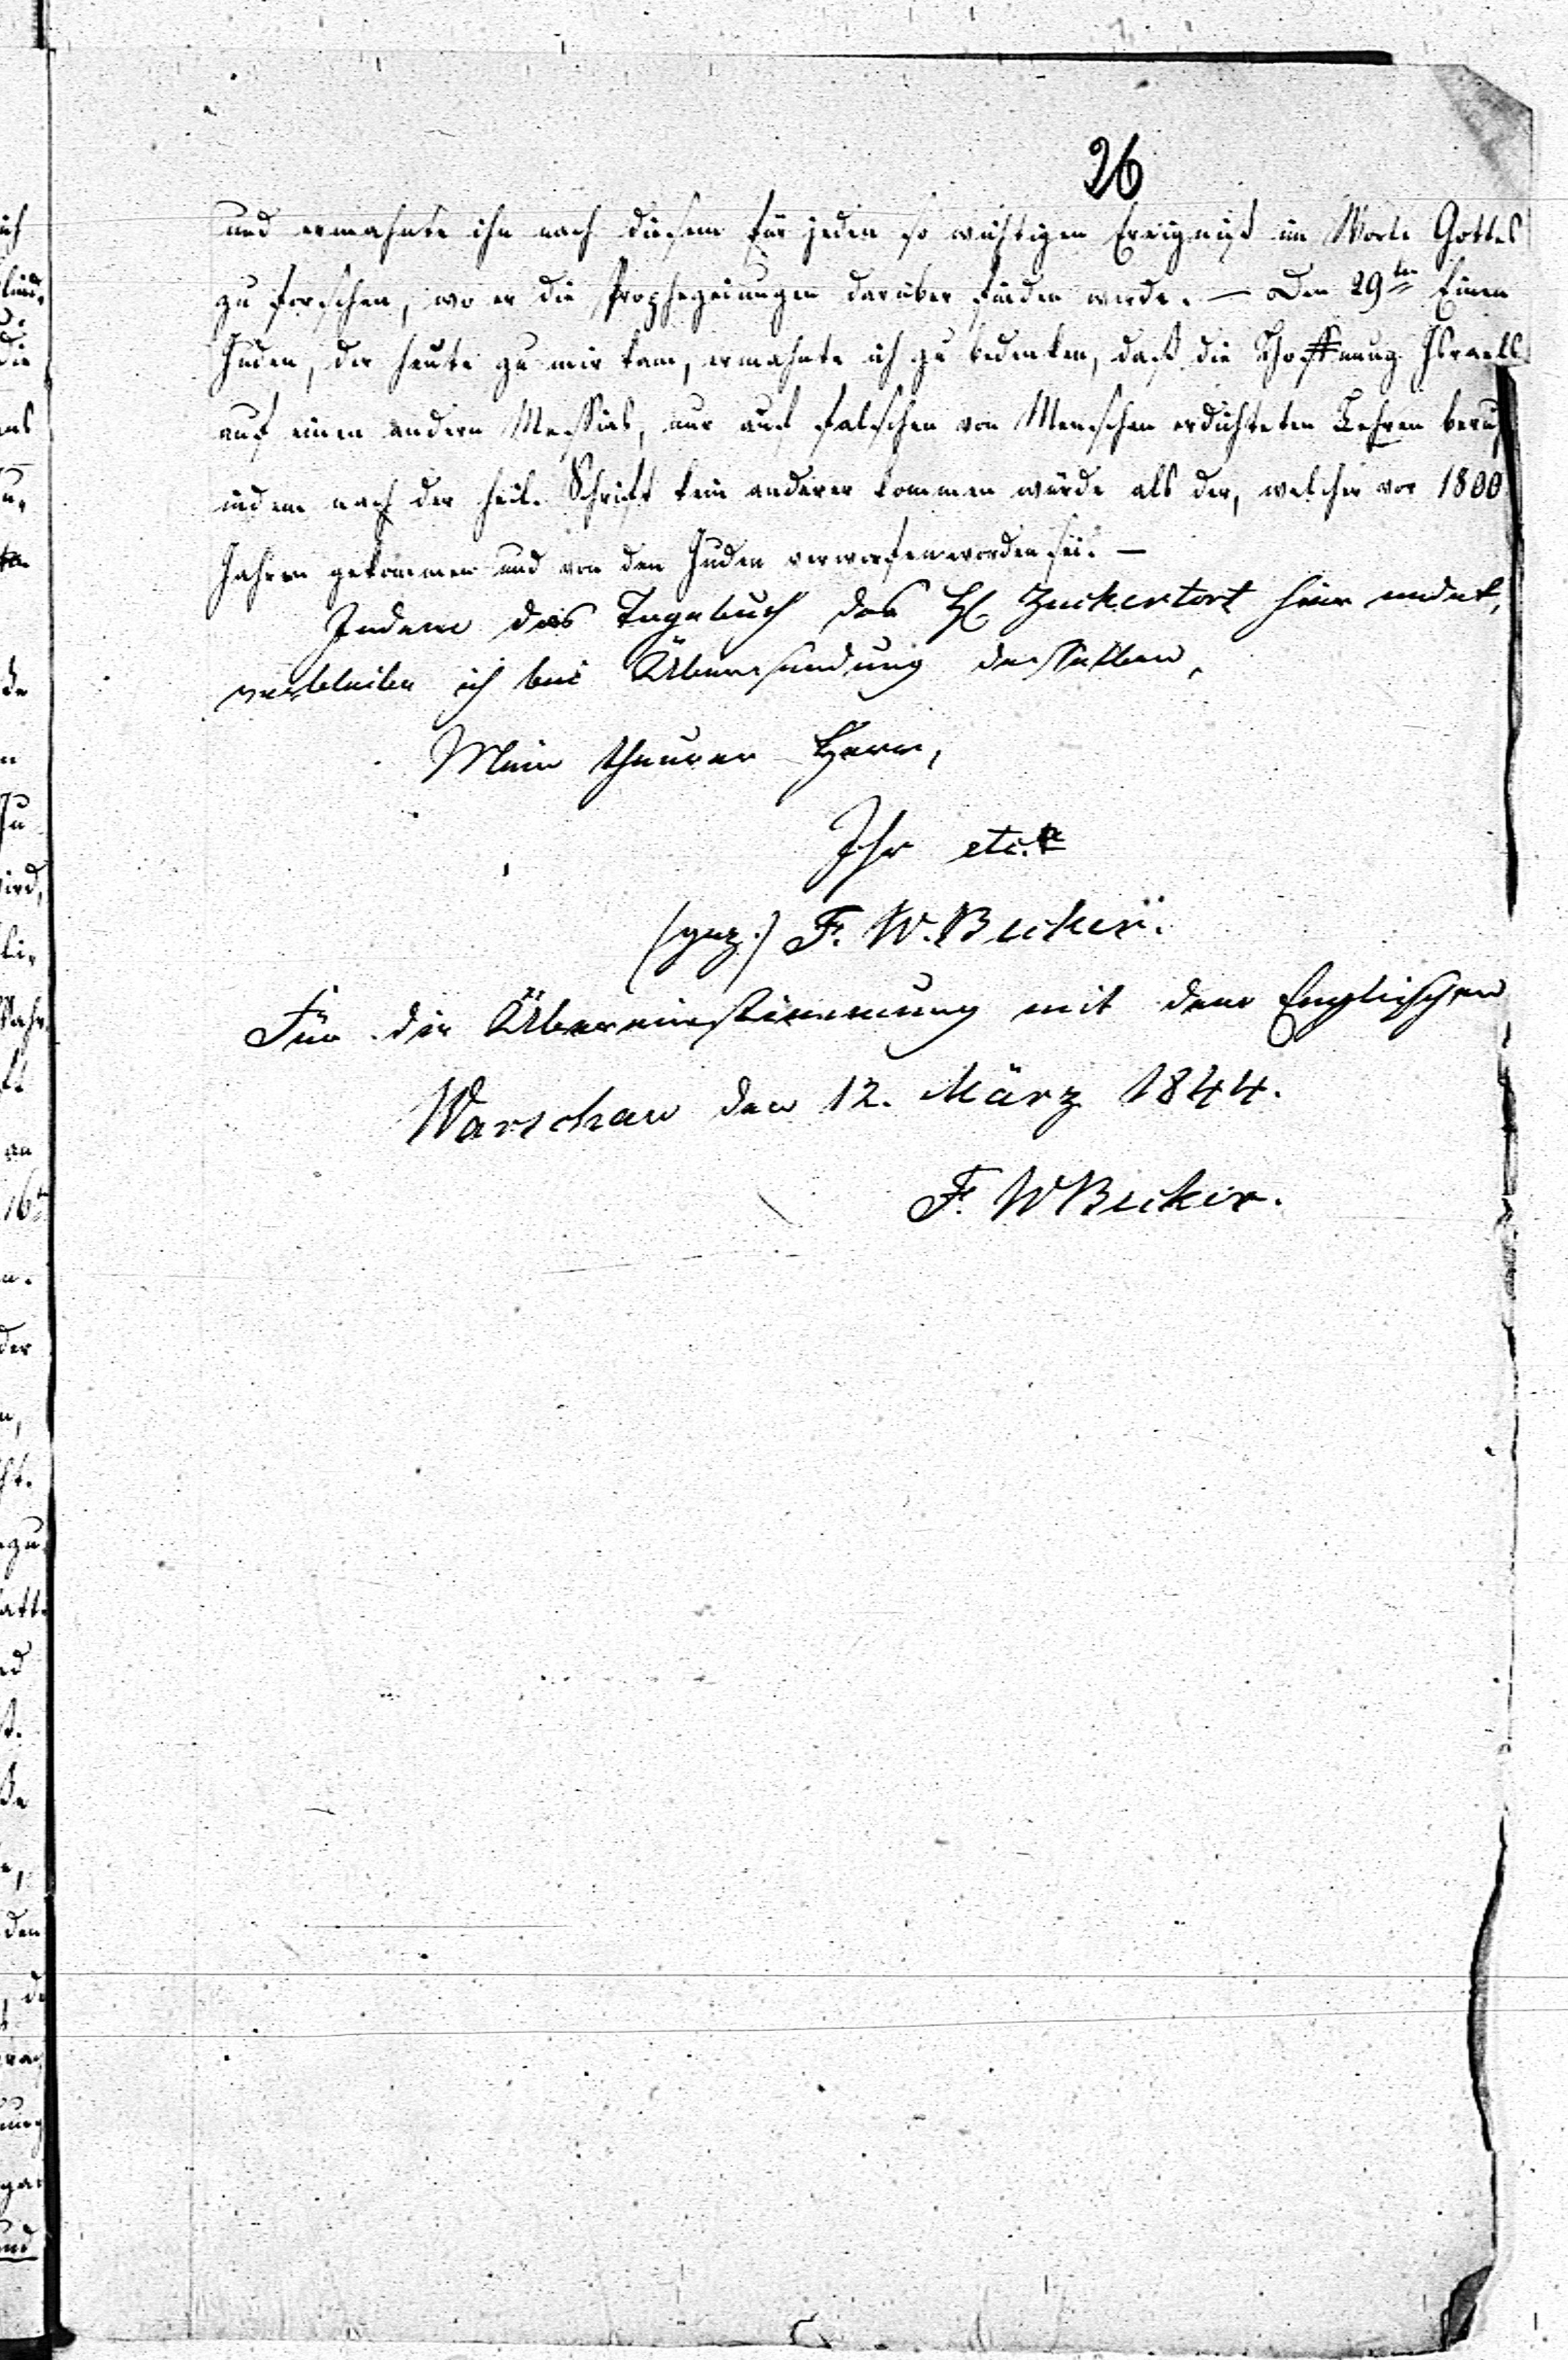 26
und ermahnte ihn nach diesem für jeden so wichtigen Ereigniß im Worte Gottes
zu forschen, wo er die Prophezeiungen darüber finden werde. — Den 29ten Einen
Juden, der heute zu mir kam, ermahnte ich zu bedenken, daß die Hoffnung Israels
auf einen andern Messias, nur auf falschen von Menschen erdichteten Lehren beruh
indem nach der heil. Schrift kein anderer kommen würde als der, welcher vor 1800
Jahren gekommen und von den Juden verworfen worden sei. —
Indem das Tagebuch des H. Zuckertort hier endet,
verbleibe ich bei Übersendung desselben,
Mein theurer Herr,
Ihr etc.
(gez.) F. W. Becker.
Für die Übereinstimmung mit dem Englischen
Warschau den 12. März 1844.
F. W Becker.